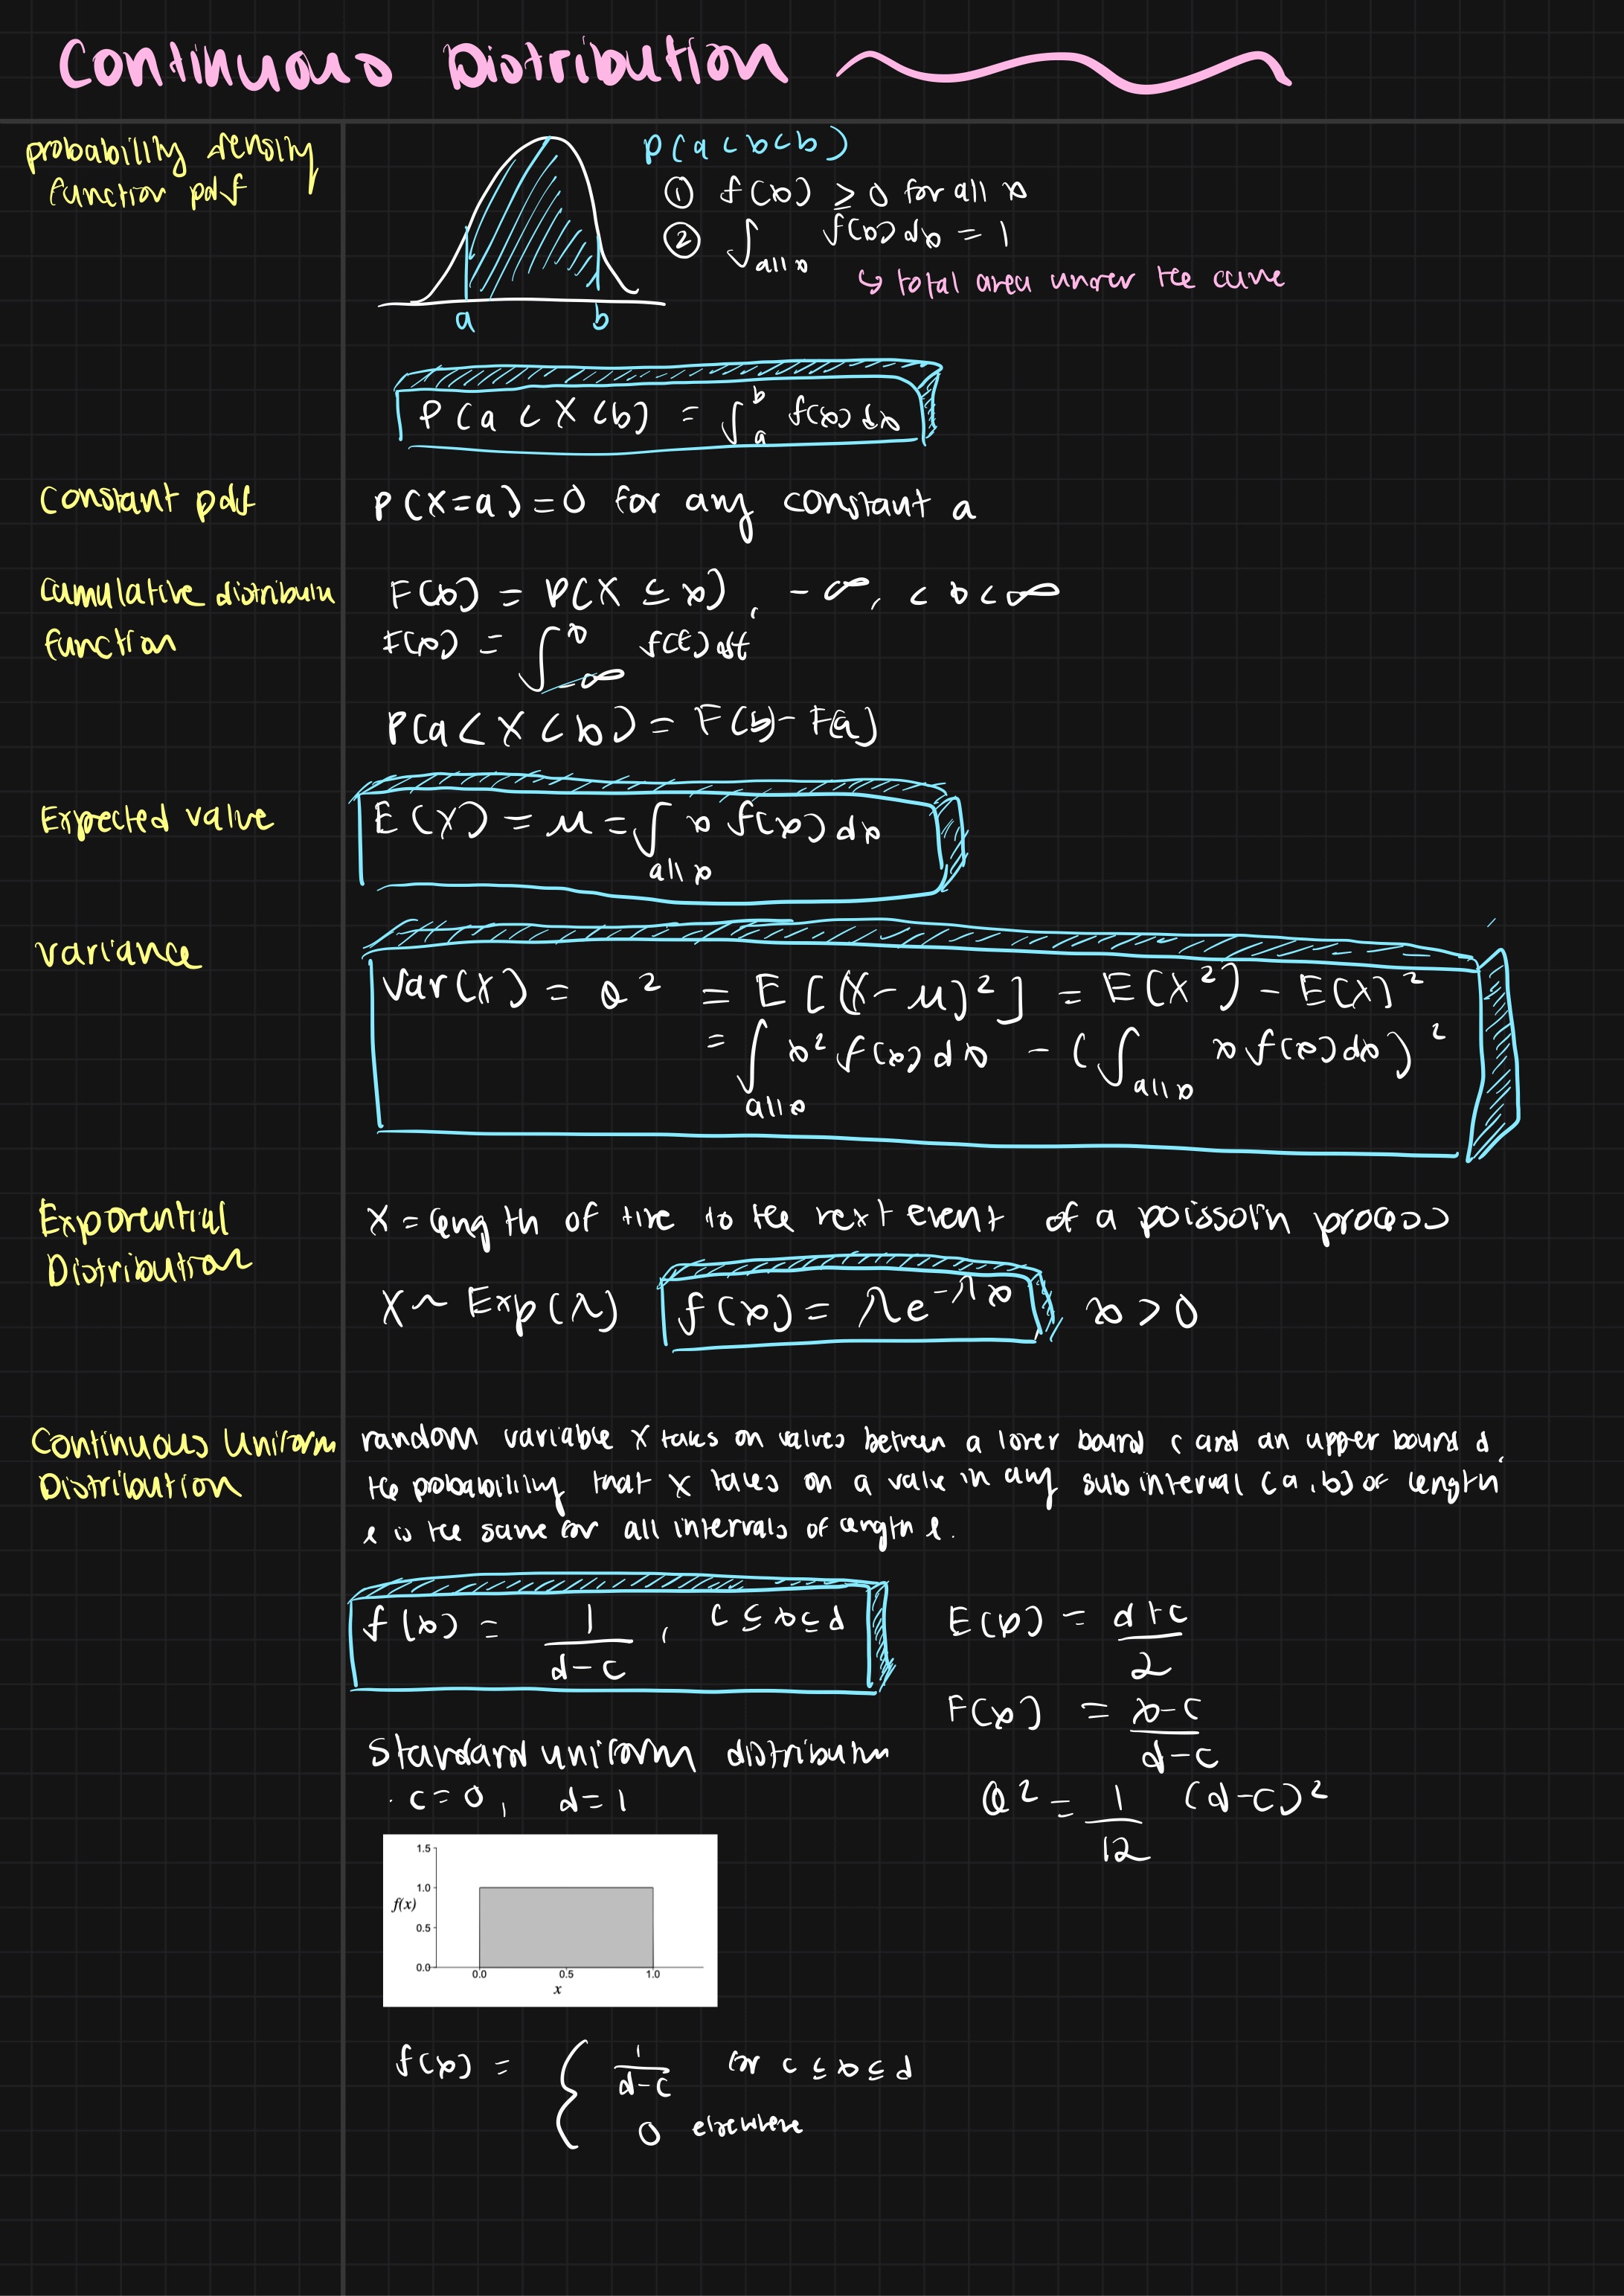 Continuous Distribution
probability density
function pdf
P(a<b<b)
① f(x) ≥ 0 for all x
② ∫all x f(x) dx = 1
↳ total area under the curve
a b
P(a < X < b) = ∫_a^b f(x) dx
Constant pdf
P(X=a)=0 for any constant a
Cumulative distribution
function
F(x) = P(X ≤ x), -∞, < x < ∞
F(x) = ∫_-∞^x f(t) dt
P(a < X < b) = F(b) - F(a)
Expected value
E(X) = μ = ∫all x x f(x) dx
Variance
Var(X) = σ² = E[(X-μ)²] = E(X²) - E(X)²
= ∫all x x² f(x) dx - (∫all x x f(x) dx)²
Exponential
Distribution
X = length of time to the next event of a poissoin process
X ~ Exp(λ) f(x) = λe^-λx x > 0
Continuous Uniform
Distribution
random variable X takes on values between a lower bound c and an upper bound d.
the probability that X takes on a value in any sub interval (a,b) of length
l is the same for all intervals of length l.
f(x) = 1/(d-c), c ≤ x ≤ d
E(x) = (d+c)/2
F(x) = (x-c)/(d-c)
σ² = 1/12 (d-c)²
Standard uniform distribution
. c=0, d=1
1.5
1.0
f(x)
0.5
0.0
0.0 0.5 1.0
x
f(x) = { 1/(d-c) for c ≤ x ≤ d
0 elsewhere